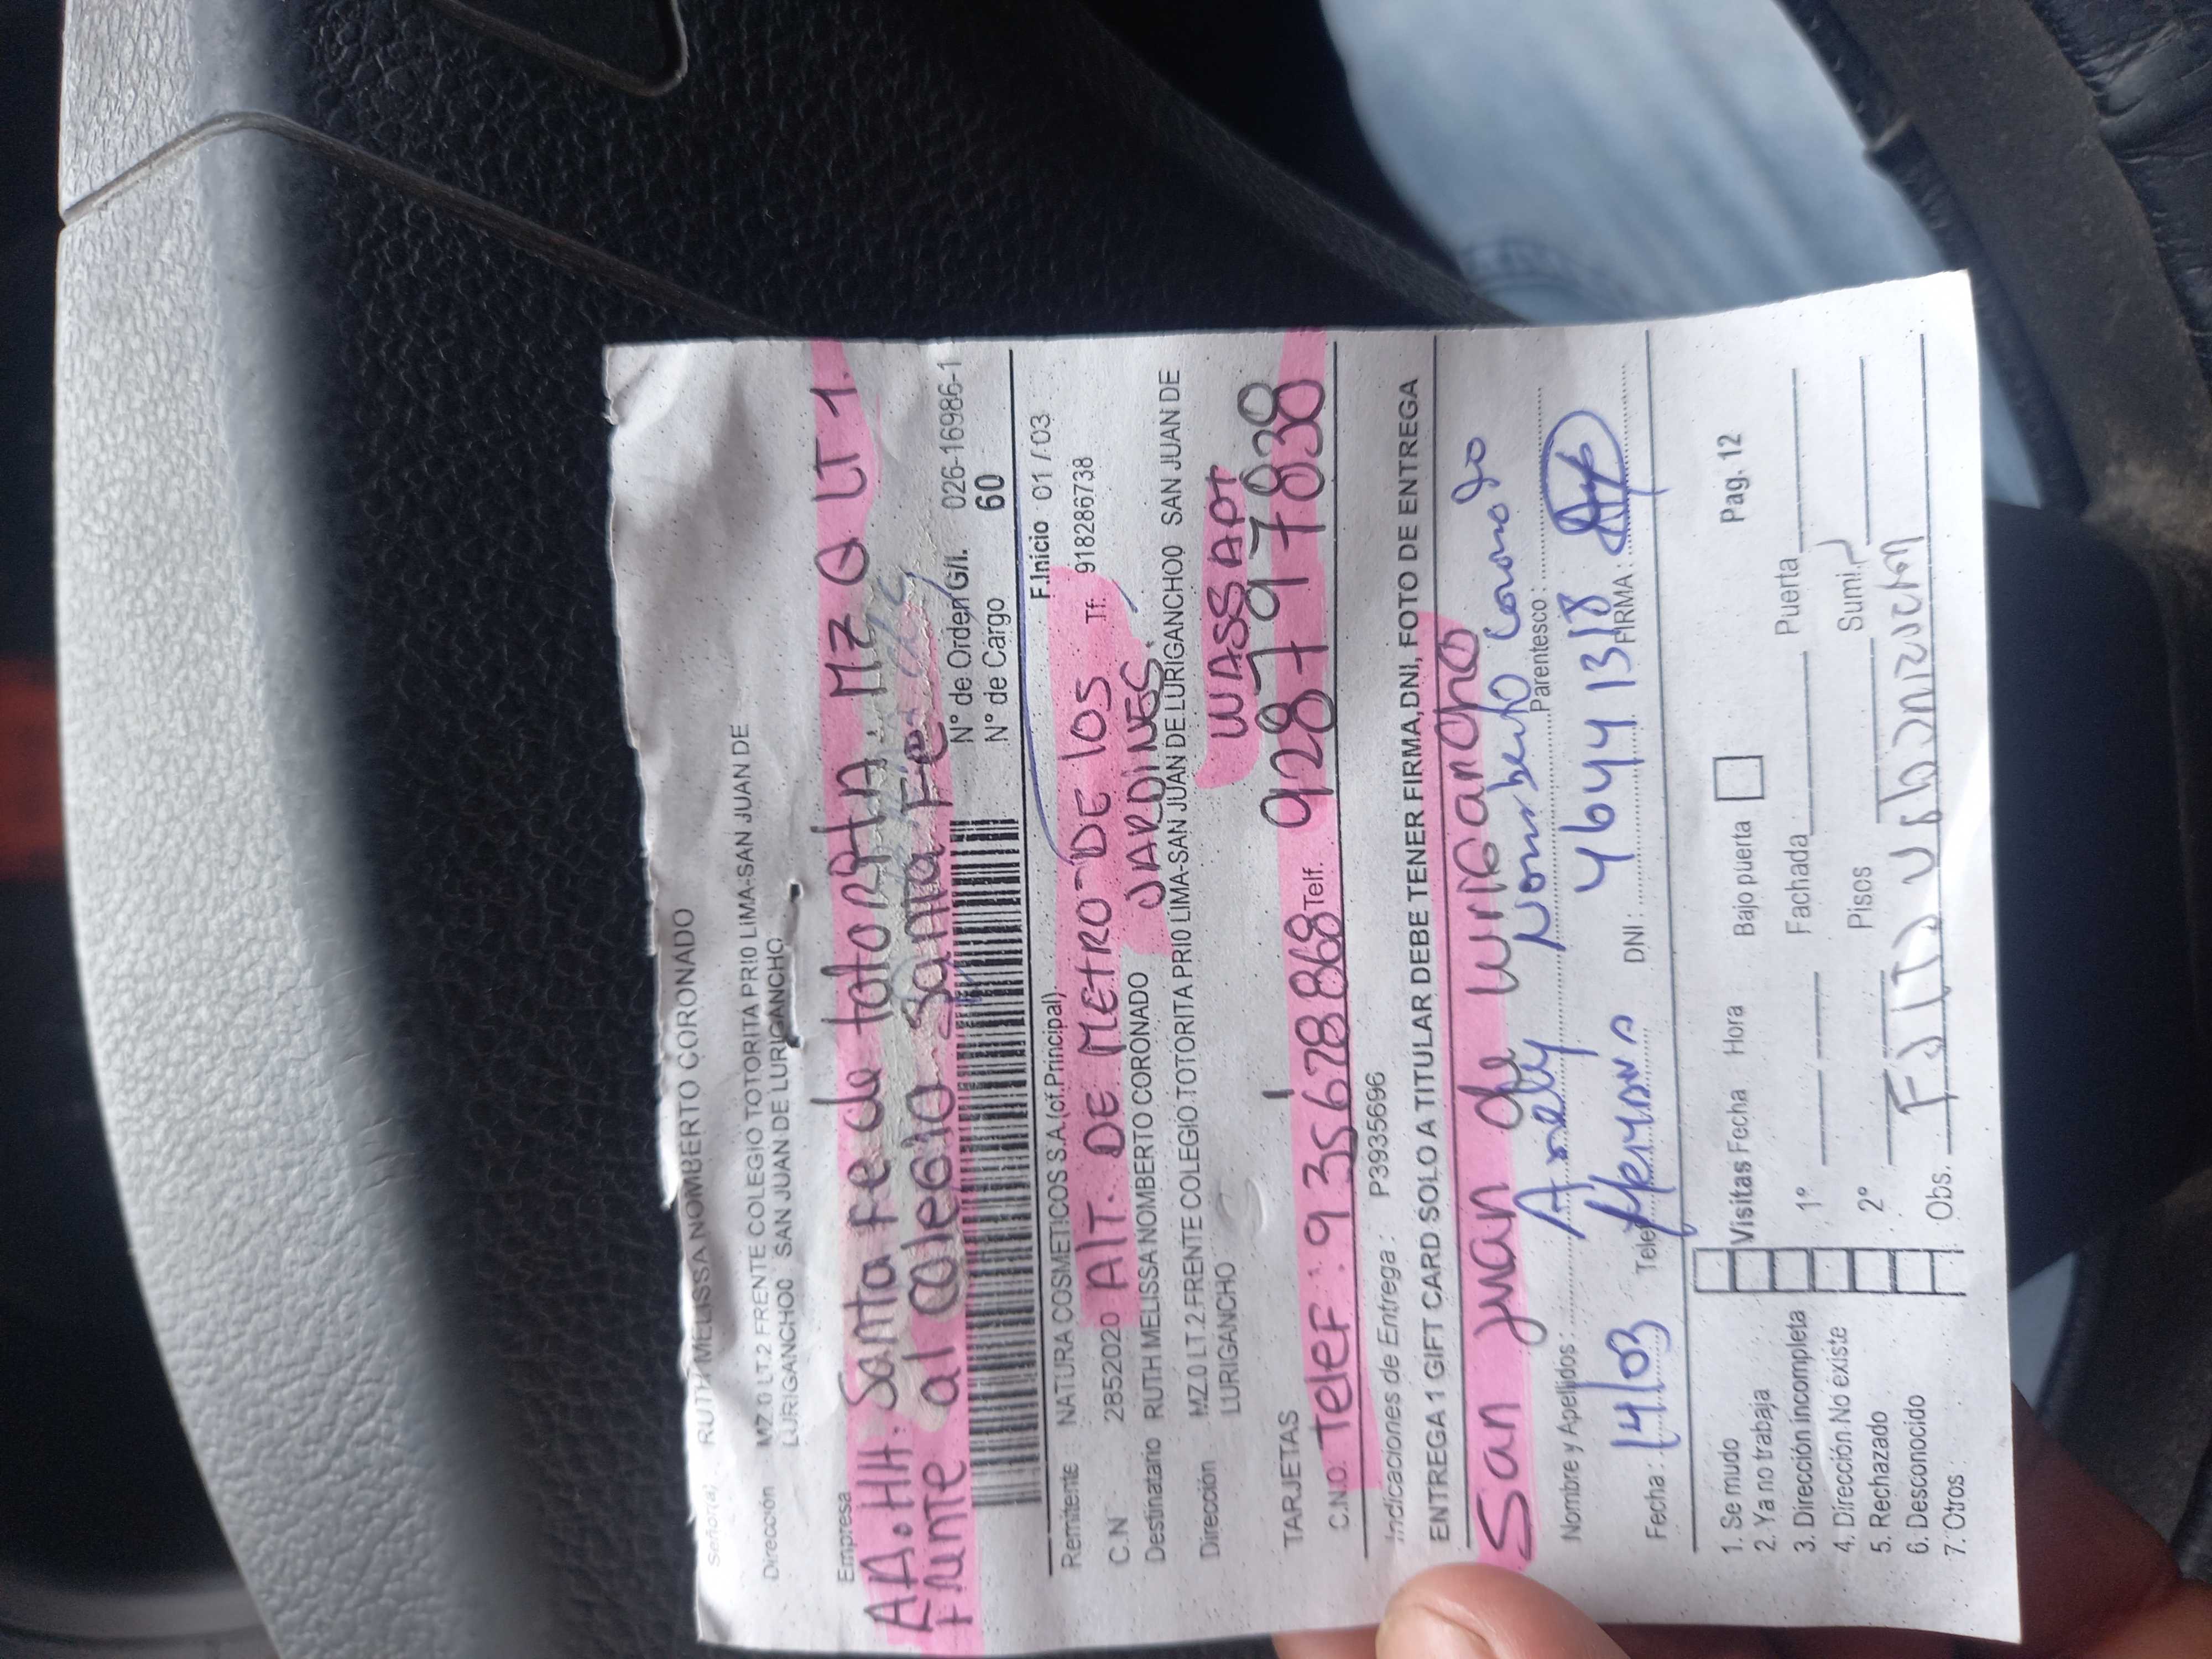 Señor(a) RUTH MELISSA NOMBERTO CORONADO
Dirección MZ.0 LT.2 FRENTE COLEGIO TOTORITA PRI0 LIMA-SAN JUAN DE
LURIGANCHO0 SAN JUAN DE LURIGANCHO
Empresa
AA.HH. Santa Fe de totorita. MZ Q LT 1.
Frente al colegio Santa Fe
N° de Orden G/I. 026-16986-1
N° de Cargo 60
F.Inicio 01 / 03
Remitente NATURA COSMETICOS S.A.(cf.Principal)
C.N 28522020 Alt. DE METRO DE los JARDINES. Tf. 918286738
Destinatario RUTH MELISSA NOMBERTO CORONADO
Dirección MZ.0 LT.2 FRENTE COLEGIO TOTORITA PRI0 LIMA-SAN JUAN DE LURIGANCHO0 SAN JUAN DE
LURIGANCHO
WASSAPT
TARJETAS
C.N.O. Telef. 935678868 Telf. 928797830
Indicaciones de Entrega : P3935696
ENTREGA 1 GIFT CARD SOLO A TITULAR DEBE TENER FIRMA,DNI, FOTO DE ENTREGA
San Juan de Lurigancho
Nombre y Apellidos : Arely Nomberto Coronado Parentesco :
Fecha : 14/03 Tele Hermana DNI : 46441318 FIRMA :
1. Se mudo
2. Ya no trabaja
3. Dirección incompleta
4. Dirección No existe
5. Rechazado
6. Desconocido
7. Otros
Visitas Fecha Hora Bajo puerta Pag. 12
1º Fachada Puerta
2º Pisos Sumi
Obs.